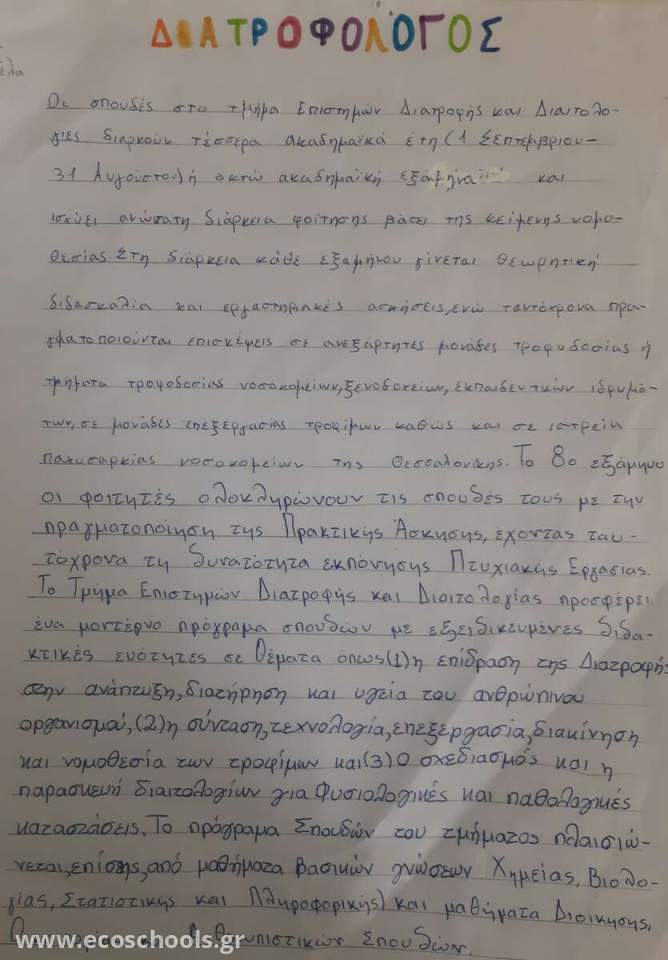 ΔΙΑΤΡΟΦΟΛΟΓΟΣ
έλα
Οι σπουδές στο τμήμα Επιστημών Διατροφής και Διαιτολο-
γιες διαρκούν τέσσερα ακαδημαϊκά έτη (1 Σεπτεμβριου-
31 Αυγούστου) ή οκτώ ακαδημαϊκή εξάμηνα και
ισχύει ανώτατη διάρκεια φοίτησης βάσει της κείμενης νομο-
θεσίας. Στη διάρκεια κάθε εξαμήνου γίνεται θεωρητική
διδασκαλία και εργαστηριακές ασκήσεις, ενώ ταυτόχρονα πρα-
γματοποιούνται επισκέψεις σε ανεξάρτητες μονάδες τροφοδοσίας ή
τμήματα τροφοδοσίας νοσοκομείων, ξενοδοχείων, εκπαιδευτικών ιδρυμά-
των, σε μονάδες επεξεργασίας τροφίμων καθώς και σε ιατρεία
παχυσαρκίας νοσοκομείων της Θεσσαλονίκης. Το 8ο εξάμηνο
οι φοιτητές ολοκληρώνουν τις σπουδές τους με την
πραγματοποίηση της Πρακτικής Άσκησης, έχοντας ταυ-
τόχρονα τη δυνατότητα εκπόνησης Πτυχιακής Εργασίας.
Το Τμήμα Επιστημών Διατροφής και Διαιτολογίας προσφέρει
ένα μοντέρνο πρόγραμα σπουδών με εξειδικευμένες διδα-
κτικές ενότητες σε θέματα όπως (1) η επίδραση της Διατροφής
στην ανάπτυξη, διατήρηση και υγεία του ανθρώπινου
οργανισμού, (2) η σύνταση, τεχνολογία, επεξεργασία, διακίνηση
και νομοθεσία των τροφίμων και (3) ο σχεδιασμός και η
παρασκευή διαιτολογίων για φυσιολογικές και παθολογικές
καταστάσεις. Το πρόγραμα Σπουδών του τμήματος πλαισιώ-
νεται, επίσης, από μαθήματα βασικών γνώσεων Χημείας, Βιολο-
γίας, Στατιστικής και Πληροφορικής) και μαθήματα Διοίκησης,
Σπουδών.
www.ecoschools.gr